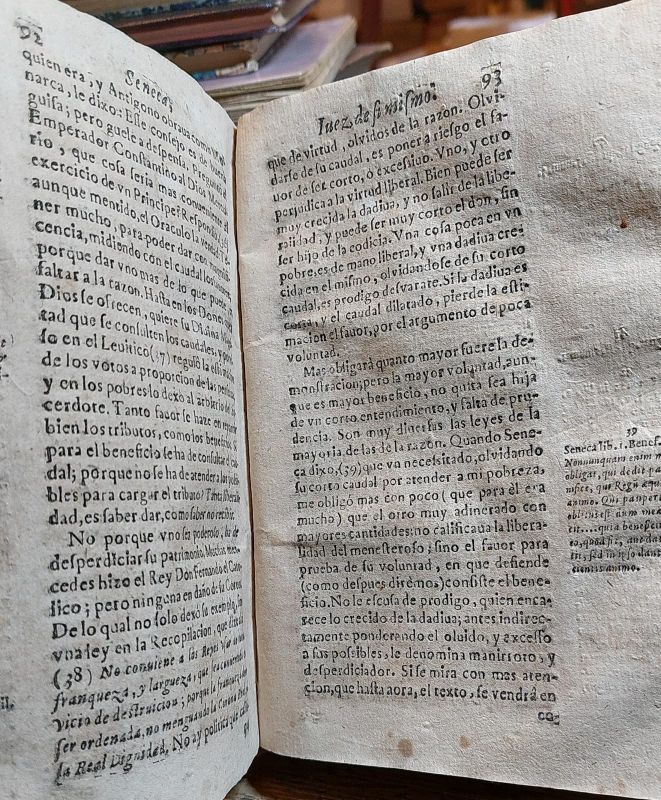 92
Seneca,
quien era, y Antigono obraua como Mo-
narca, le dixo: Este consejo es de buena
guisa; pero huele a despensa. Pregunto el
Emperador Constantino al Dios
rio, que cosa seria mas conueniente al
exercicio de vn Principe? Respondiò,
aunque mentido, el Oraculo la verdad:
ner mucho, para poder dar con
cencia, midiendo con el caudal los
porque dar vno mas de lo que puede, es
faltar a la razon. Hasta en los Dones, que a
Dios se ofrecen, quiere su Diuina Mages-
tad que se consulten los caudales, y por
so en el Leuitico (37) regulò la estimacion
de los votos a proporcion de las personas,
y en los pobres lo dexò al arbitrio del Sa-
cerdote. Tanto fauor se haze en repartir
bien los tributos, como los beneficios. Si
para el beneficio se ha de consultar el cau-
dal; porque no se ha de atender a los possi-
bles para cargar el tributo? Tanta liberali-
dad, es saber dar, como saber no recibir.
No porque vno sea poderoso, ha de
desperdiciar su patrimonio. Muchas mer-
cedes hizo el Rey Don Fernando el Cato-
lico; pero ninguna en daño de su Corona.
De lo qual no solo dexò su exemplo, sino
vna ley en la Recopilacion, que dize
(38) No conuiene a los Reyes vsar de tanta
franqueza, y largueza, que sea conuertida en
vicio de destruicion; porque la franqueza ha de
ser ordenada, no menguando la Corona Real, ni
la Real Dignidad. No ay politica que
93
Iuez de si mismo:
que de virtud, olvidos de la razon. Olvi-
darse de su caudal, es poner a riesgo el fa-
uor de ser corto, ò excessiuo. Vno, y otro
perjudica a la virtud liberal. Bien puede ser
muy crecida la dadiua, y no salir de la libe-
ralidad, y puede ser muy corto el don, sin
ser hijo de la codicia. Vna cosa poca en vn
pobre, es de mano liberal, y vna dadiua cre-
cida en el mismo, olvidandose de su corto
caudal, es prodigo desvarate. Si la dadiua es
corta, y el caudal dilatado, pierde la esti-
macion el fauor, por el argumento de poca
voluntad.
Mas obligarà quanto mayor fuere la de-
monstracion; pero la mayor voluntad, aun-
que es mayor beneficio, no quita sea hija
de vn corto entendimiento, y falta de pru-
dencia. Son muy diuersas las leyes de la
mayoria, de las de la razon. Quando Sene-
ca dixo, (39) que vn necessitado, olvidando
su corto caudal por atender a mi pobreza,
me obligò mas con poco (que para èl era
mucho) que el otro muy adinerado con
mayores cantidades; no calificaua la libera-
lidad del menesteroso; sino el fauor para
prueba de su voluntad, en que defiende
(como despues dirèmos) consiste el bene-
ficio. No le escusa de prodigo, quien enca-
rece lo crecido de la dadiua; antes indirec-
tamente ponderando el oluido, y excesso
a sus possibles, le denomina manirroto, y
desperdiciador. Si se mira con mas aten-
cion, que hasta aora, el texto, se vendrà en
co-
39
Seneca lib. 1. Benef.
Nonnunquam enim
obligat, qui dedit
nificè, qui Regũ
animo. Qui
oblitus est dum
tit.... quia
tio, quod sit,
tis, sed in ipso
cientis animo.